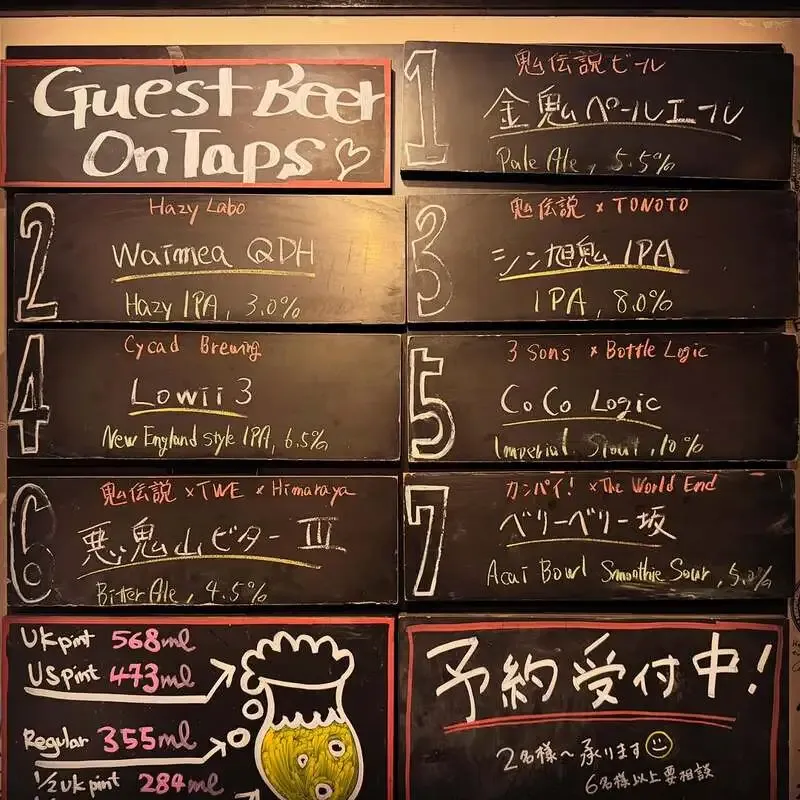 Guest Beer
On Taps♡
1
鬼伝説ビール
金鬼ペールエール
Pale Ale, 5.5%
2
Hazy Labo
Waimea QDH
Hazy IPA, 3.0%
3
鬼伝説 × TONOTO
シン旭鬼 IPA
IPA, 8.0%
4
Cycad Brewing
Lowii 3
New England style IPA, 6.5%
5
3 Sons × Bottle Logic
CoCo Logic
Imperial Stout, 10%
6
鬼伝説 × TWE × Himaraya
悪鬼山ビター III
Bitter Ale, 4.5%
7
カンパイ! × The World End
ベリーベリー坂
Acai Bowl Smoothie Sour, 5.0%
UK pint 568ml
US pint 473ml
Regular 355ml
1/2 UK pint 284ml
予約受付中!
2名様〜承ります
6名様以上要相談